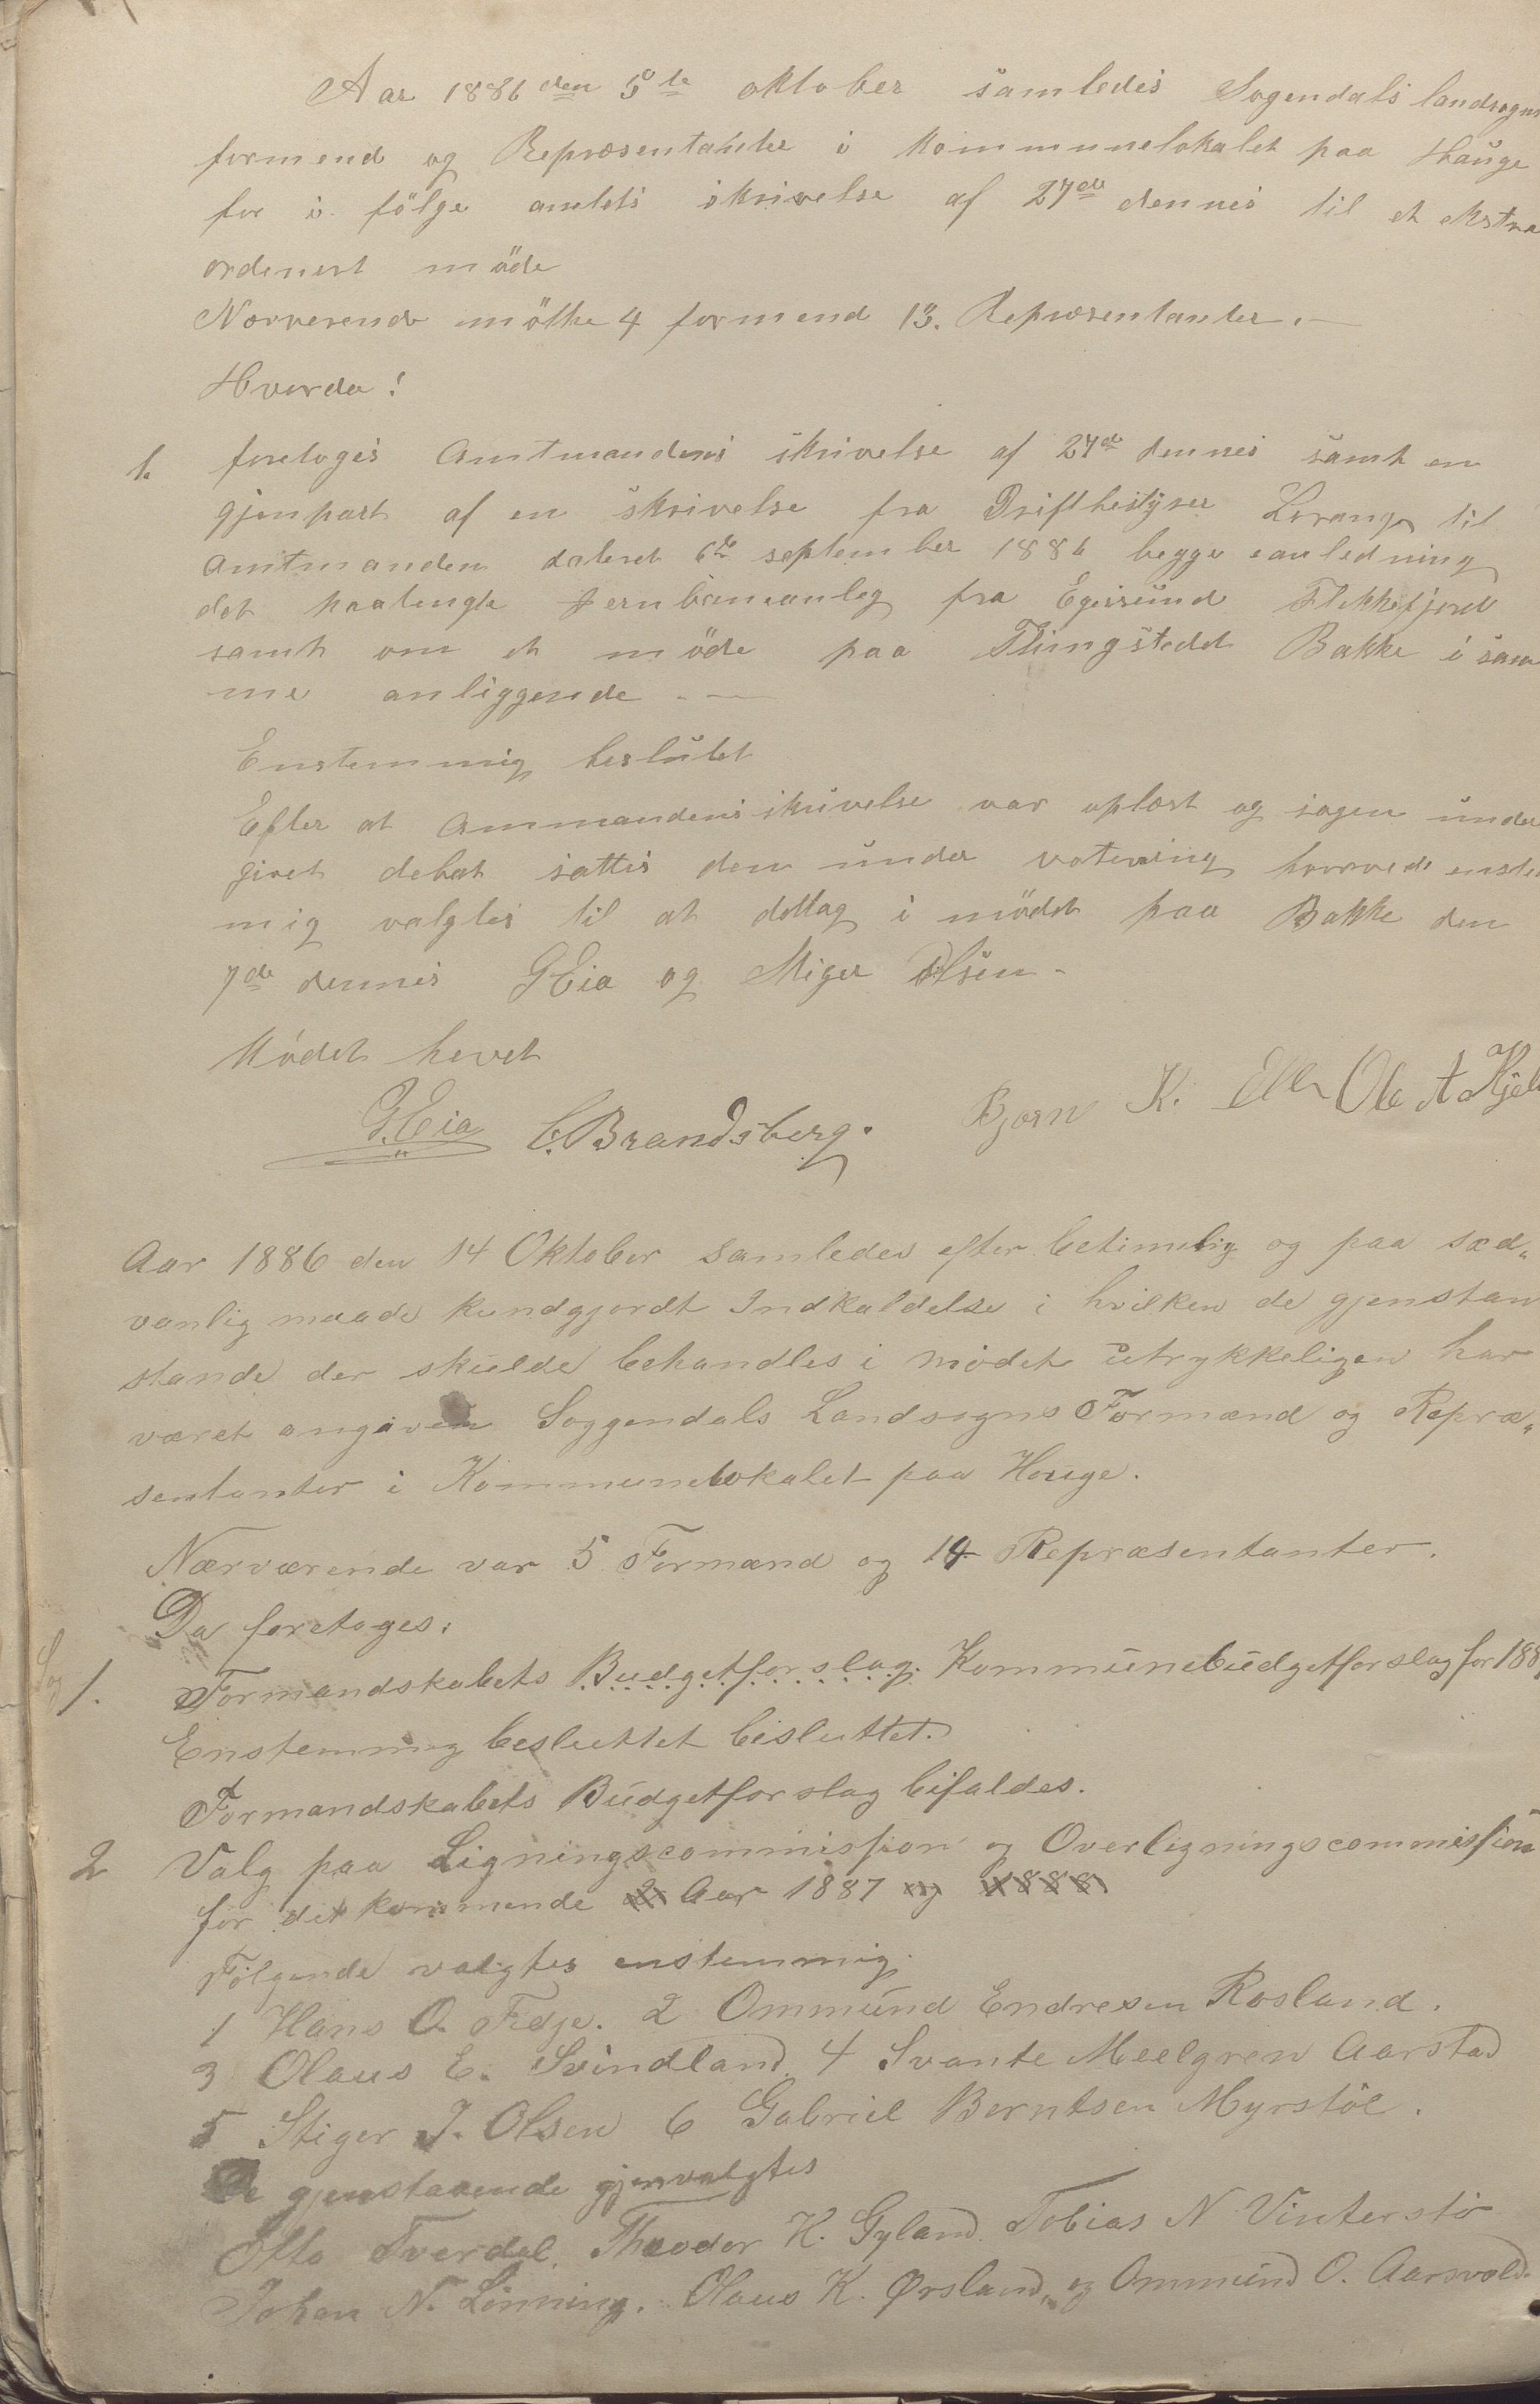 Aar 1886 den 5te oktober samledes Sogendals landsogns
formend og Repræsentanter i Kommunelokalet paa Hauge
for i følge amtets skrivelse af 27de dennes til et ekstra
ordenert møde
Nærverende møtte 4 formend 13. Repræsentanter. —
Hvorda!
1. foretoges Amtmandens skrivelse af 27de dennes samt en
gjenpart af en skrivelse fra Driftbestyrer Lorange til
amtmanden dateret 6te september 1886 begge eanledning
det paatengte Jernbaneanleg fra Egersund Flekkefjord
samt om et møde paa Thingstedet Bakke i sam
me anliggende - —
Enstemmig beslutet
Efter at Ammandens skrivelse var oplæst og sagen under
givet debat sattes den under votering hvorved enste
mig valgtes til at deltag i mødet paa Bakke den
7de dennes GEia og Stiger Olsen -
Mødet hevet
G.Eia C. Brandsberg. Bjorn K. Ole A Kjel
Aar 1886 den 14 Oktober samledes efter betimelig og paa sæd„
vanlig maade kundgjordt Indkaldelse i hvilken de gjenstan
stande der skulde behandles i mødet utrykkeligen har
været angiven Soggendals Landsogns Formænd og Repræ„
sentanter i Kommunelokalet paa Houge.
Nærværende var 5 Formænd og 14 Repræsentanter.
Da foretoges:
Sag 1. Formandskabets Budgetforslag. Kommunebudgetforslag for 188
Enstemmig besluttet besluttet.
Formandskabets Budgetforslag bifaldes.
2 Valg paa Ligningscommission og Overligningscommission
for det kommende 2 Aar 1887 og 1888
Følgende valgtes enstemmig.
1 Hans O. Fedje. 2 Ommund Endresen Rosland.
3 Olaus E. Svindland. 4 Svante Meelgren Aarstad
5 Stiger J. Olsen 6 Gabriel Berntsen Myrstøl.
De gjenstaaende gjenvalgtes
Otto Tverdal. Theodor K. Gyland. Tobias N Vinterstø
Johan N. Lønning. Olaus K. Ørsland, og Ommund O. Aarsvold.